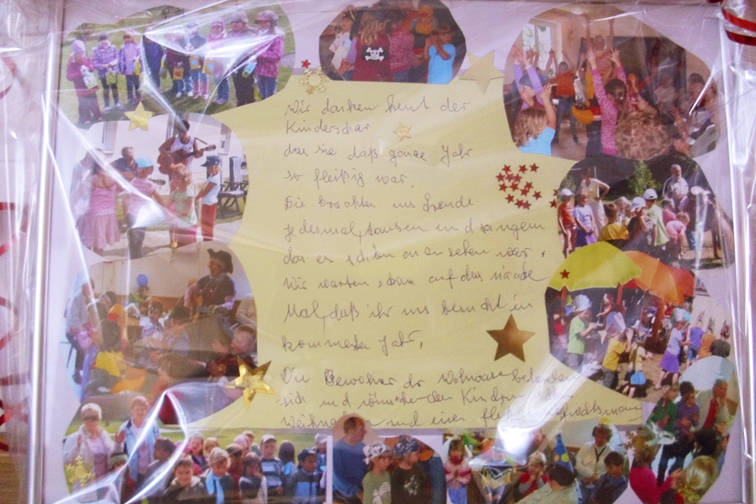 Wir danken heut der
Kinderschar
das sie daß ganze Jahr
so fleißig war.
Sie brachten uns Freude
jedesmal, tanzen und sangen
das es schön an zu sehen war.
Wir warten schon auf das nächste
Mal, daß ihr uns besucht im
kommenden Jahr.
Die Bewohner der bedanken
sich und wünschen den Kindern
Weihnachten und einen Weihnachtsmann